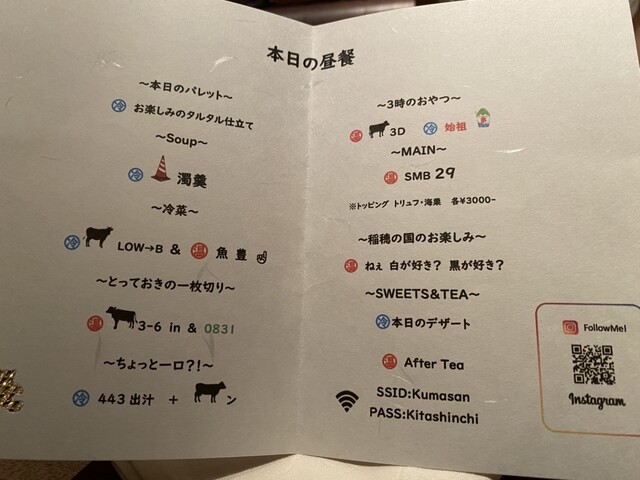 本日の昼餐
～本日のパレット～
冷 お楽しみのタルタル仕立て
～Soup～
冷 濁羹
～冷菜～
冷 LOW→B & 温 魚豊
～とっておきの一枚切り～
温 3-6 in & 0831
～ちょっと一口？！～
冷 443出汁 + ン
～3時のおやつ～
温 3D 冷 始祖
～MAIN～
温 SMB 29
※トッピング トリュフ・海栗 各¥3000-
～稲穂の国のお楽しみ～
温 ねぇ 白が好き？ 黒が好き？
～SWEETS&TEA～
冷 本日のデザート
温 After Tea
SSID:Kumasan
PASS:Kitashinchi
FollowMe!
Instagram